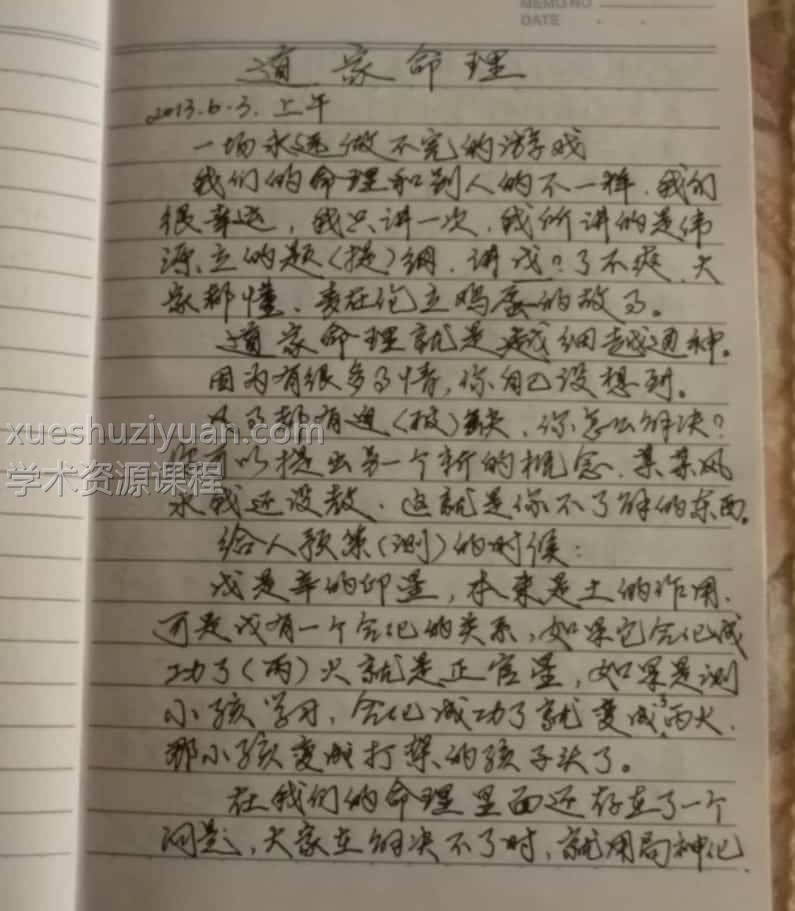 MEMO NO
DATE
道家命理
2013.6.3.上午
一场永远做不完的游戏
我们的命理和别人的不一样.我们
很幸运,我只讲一次,我所讲的是伟
立的题(提)纲.讲戊?了不疾.大
家都懂、责在论立鸡蛋的故了。
道家命理就是越细越通神。
因为有很多了情,你自己没想到。
凡了都有 (被)缺、你怎么解决?
你可以提出另一个新的概念.某某风
水我还没教.这就是你不了解的东西。
给人预策(测)的时候:
戊是辛的印星,本来是土的作用.
可是戊有一个合化的关系,如果它合化成
功了(丙)火就是正官星,如果是测
小孩学习.合化成功了就变成丙火.
那小孩变成打架的孩子头了。
在我们的命理里面还存在了一个
问题,大家在解决不了时,就用局神化
xueshuziyuan.com
学术资源课程